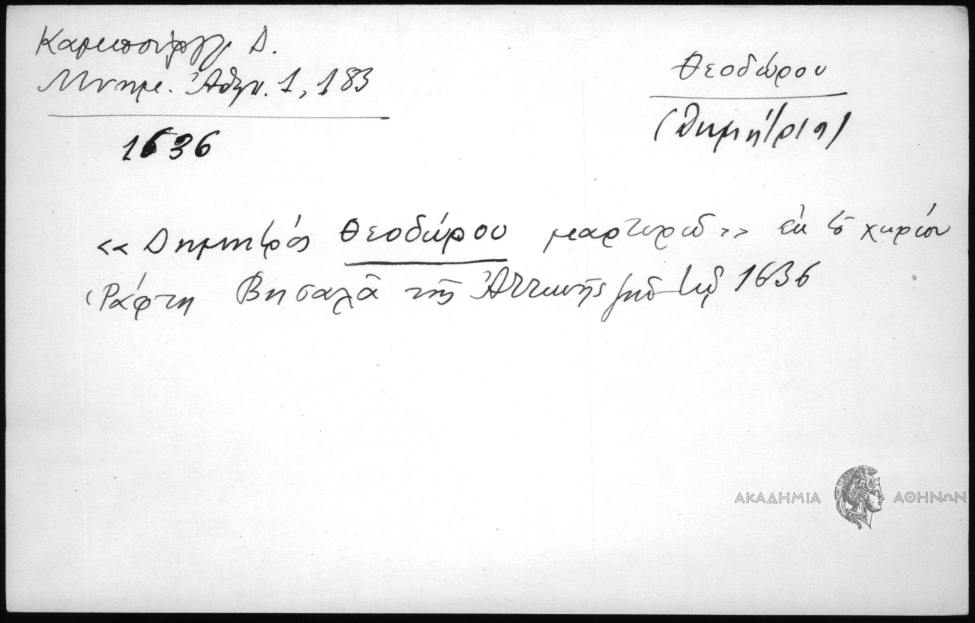 Καμπούρογλ. Δ.
Μνημ. Ἀθην. 1, 183
1636
Θεοδώρου
(Δημήτριος)
«Δημητρός Θεοδώρου μαρτυρῶ» ἐκ τοῦ χωρίου
Ράφτη Βησαλᾶ τῆς Ἀττικῆς 1636
ΑΚΑΔΗΜΙΑ ΑΘΗΝΩΝ